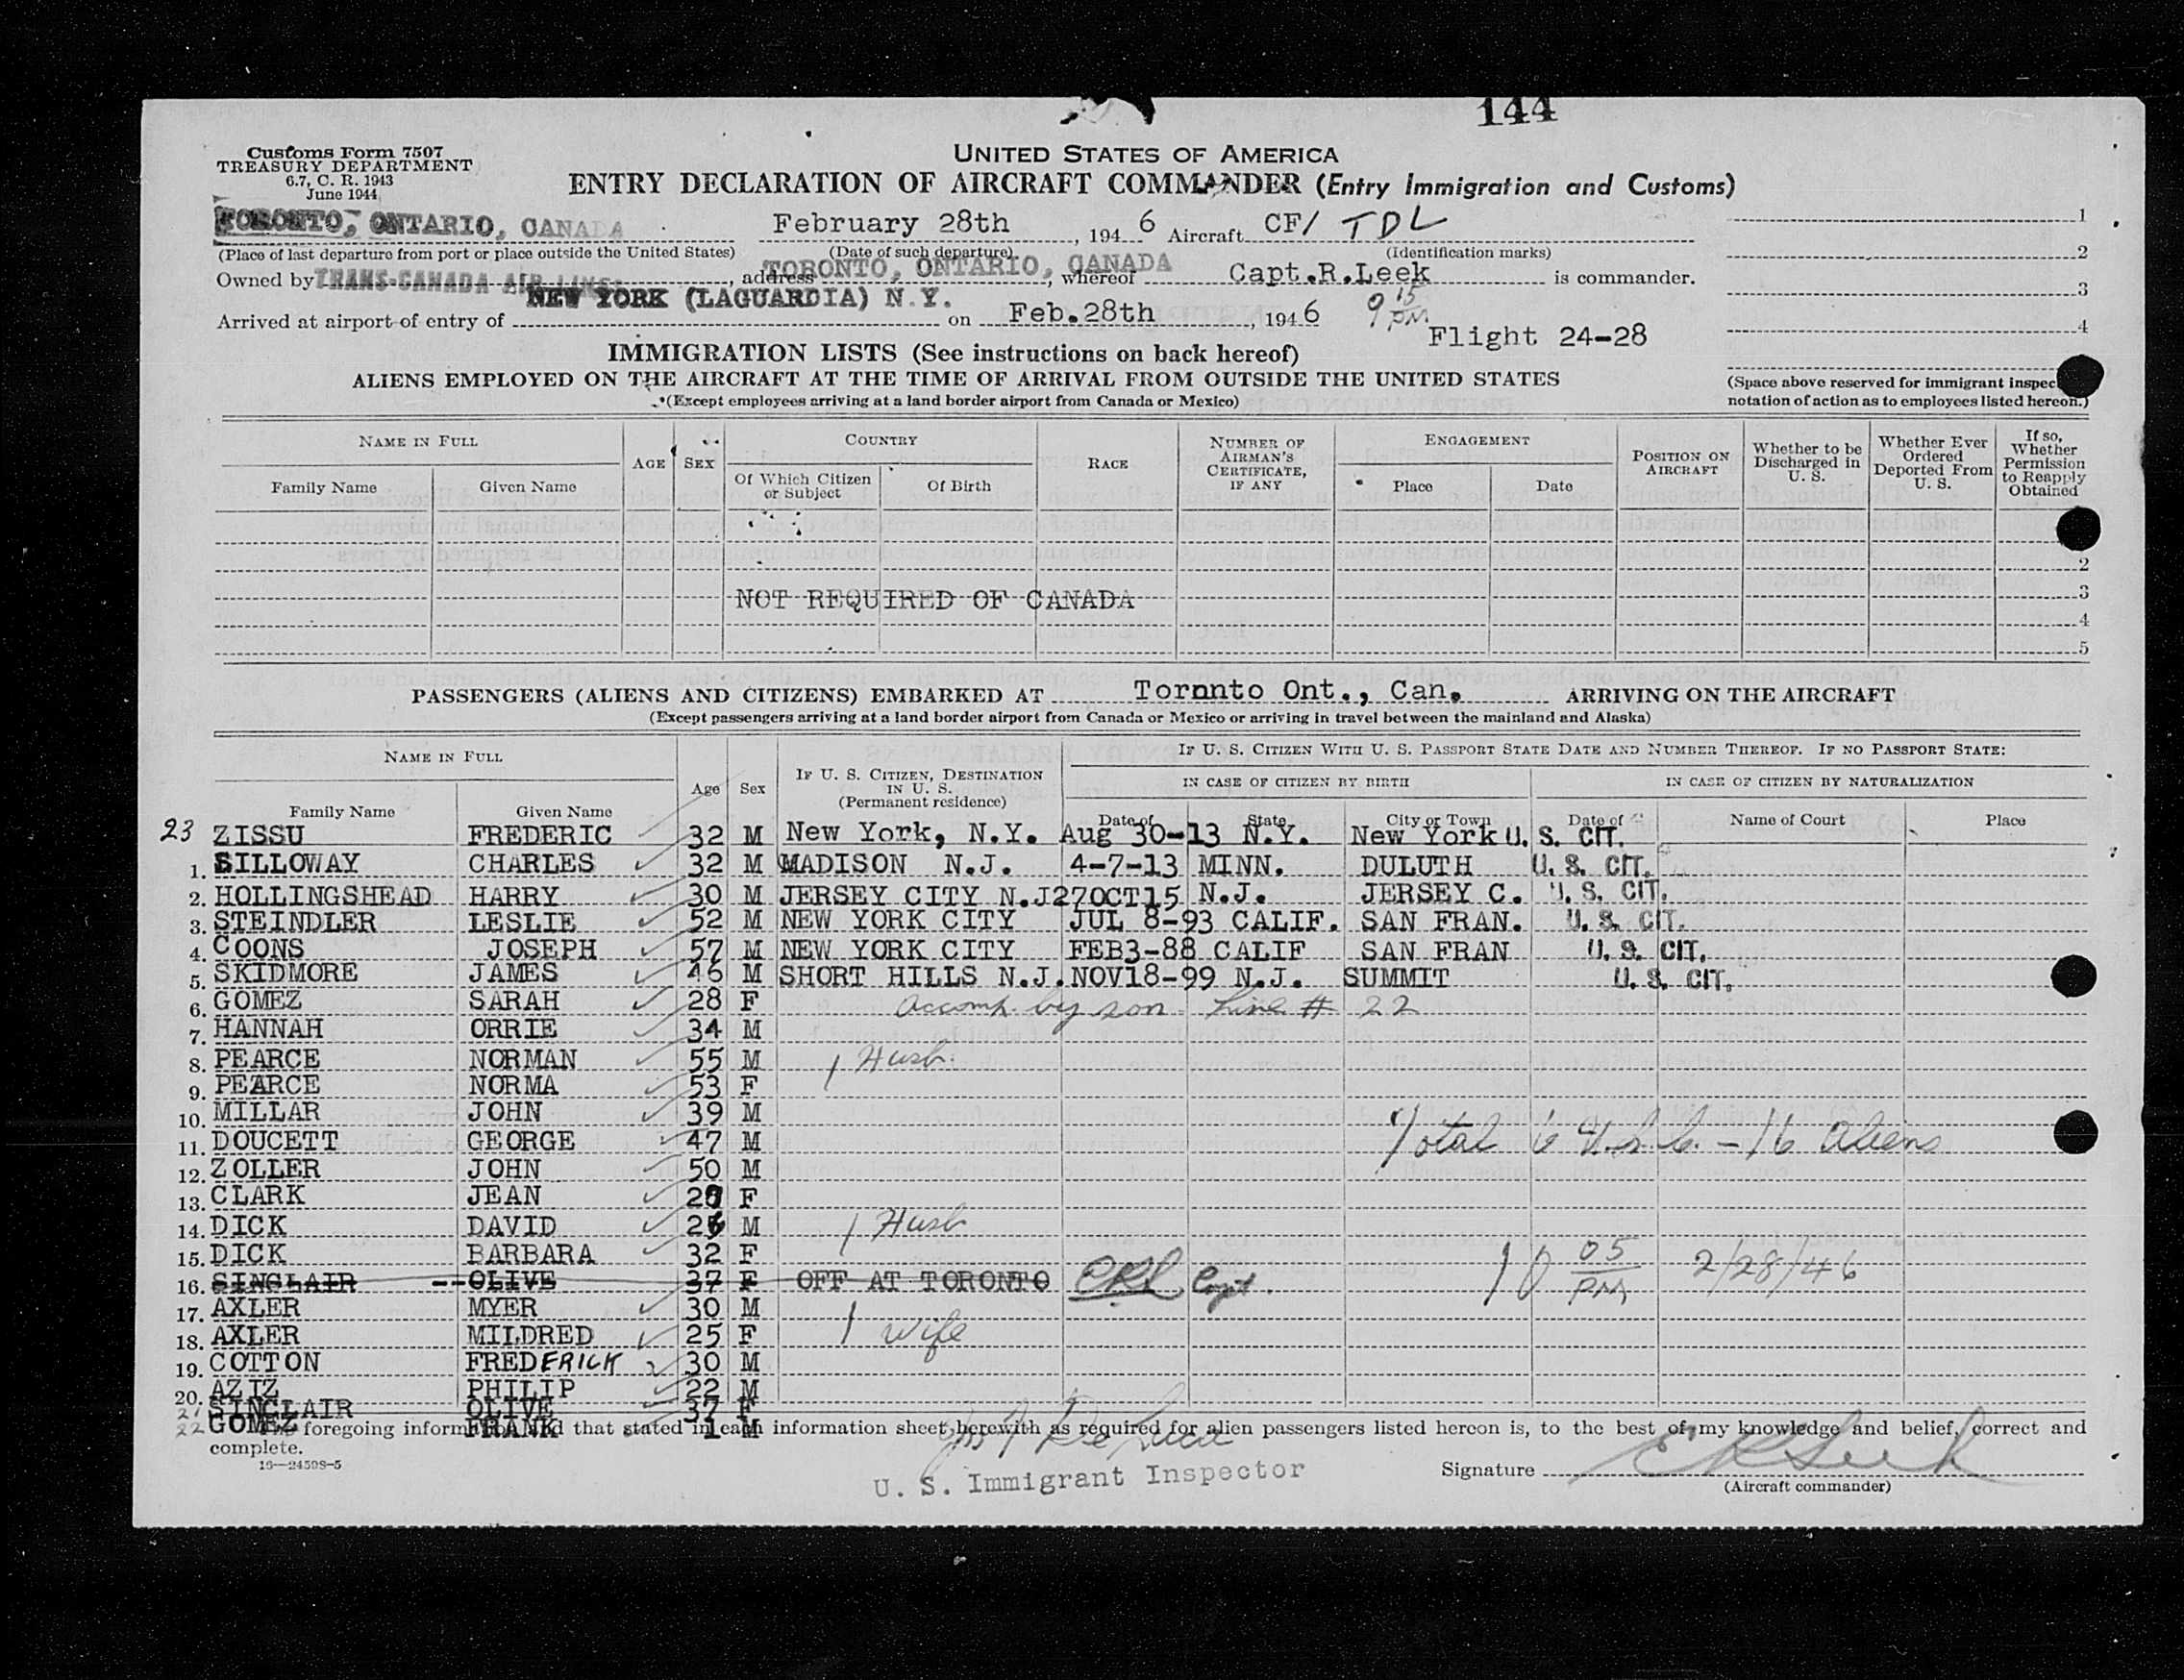 144
Customs Form 7507
TREASURY DEPARTMENT
6.7, C. R. 1943
June 1944
UNITED STATES OF AMERICA
ENTRY DECLARATION OF AIRCRAFT COMMANDER (Entry Immigration and Customs)
TORONTO, ONTARIO, CANADA February 28th, 194 6 Aircraft CF/ TDL 1
(Place of last departure from port or place outside the United States) (Date of such departure) (Identification marks) 2
Owned by TRANS-CANADA AIR LINES, address TORONTO, ONTARIO, CANADA, whereof Capt.R.Leek is commander. 3
Arrived at airport of entry of NEW YORK (LAGUARDIA) N.Y. on Feb.28th, 194 6 9 15 PM 4
Flight 24-28
IMMIGRATION LISTS (See instructions on back hereof)
ALIENS EMPLOYED ON THE AIRCRAFT AT THE TIME OF ARRIVAL FROM OUTSIDE THE UNITED STATES
(Except employees arriving at a land border airport from Canada or Mexico)
(Space above reserved for immigrant inspec
notation of action as to employees listed hereon.)
NAME IN FULL AGE SEX COUNTRY RACE NUMBER OF AIRMAN'S CERTIFICATE, IF ANY ENGAGEMENT POSITION ON AIRCRAFT Whether to be Discharged in U. S. Whether Ever Ordered Deported From U. S. If so, Whether Permission to Reapply Obtained
Family Name Given Name Of Which Citizen or Subject Of Birth Place Date
2
NOT REQUIRED OF CANADA 3
4
5
PASSENGERS (ALIENS AND CITIZENS) EMBARKED AT Toronto Ont., Can. ARRIVING ON THE AIRCRAFT
(Except passengers arriving at a land border airport from Canada or Mexico or arriving in travel between the mainland and Alaska)
NAME IN FULL Age Sex IF U. S. CITIZEN, DESTINATION IN U. S. (Permanent residence) IF U. S. CITIZEN WITH U. S. PASSPORT STATE DATE AND NUMBER THEREOF. IF NO PASSPORT STATE:
IN CASE OF CITIZEN BY BIRTH IN CASE OF CITIZEN BY NATURALIZATION
Family Name Given Name Date of State City or Town Date of Name of Court Place
23 ZISSU FREDERIC 32 M New York, N.Y. Aug 30-13 N.Y. New York U. S. CIT.
1. SILLOWAY CHARLES 32 M MADISON N.J. 4-7-13 MINN. DULUTH U. S. CIT.
2. HOLLINGSHEAD HARRY 30 M JERSEY CITY N.J 27OCT15 N.J. JERSEY C. U. S. CIT.
3. STEINDLER LESLIE 52 M NEW YORK CITY JUL 8-93 CALIF. SAN FRAN. U. S. CIT.
4. COONS JOSEPH 57 M NEW YORK CITY FEB3-88 CALIF SAN FRAN U. S. CIT.
5. SKIDMORE JAMES 46 M SHORT HILLS N.J. NOV18-99 N.J. SUMMIT U. S. CIT.
6. GOMEZ SARAH 28 F accomp. by son Line # 22
7. HANNAH ORRIE 34 M
8. PEARCE NORMAN 55 M / Husb.
9. PEARCE NORMA 53 F
10. MILLAR JOHN 39 M
11. DOUCETT GEORGE 47 M Total 6 U.S.C. - 16 Aliens
12. ZOLLER JOHN 50 M
13. CLARK JEAN F
14. DICK DAVID M / Husb
15. DICK BARBARA 32 F
16. SINCLAIR --OLIVE 37 F OFF AT TORONTO ERL Capt. 10 05 PM 2/28/46
17. AXLER MYER 30 M
18. AXLER MILDRED 25 F / wife
19. COTTON FREDERICK 30 M
20. AZIZ PHILIP 22 M
21 SINCLAIR OLIVE 37 F
22 GOMEZ FRANK 1 M
foregoing information and that stated in each information sheet herewith as required for alien passengers listed hereon is, to the best of my knowledge and belief, correct and
complete.
16—24598-5
U. S. Immigrant Inspector
Signature E R Leek
(Aircraft commander)